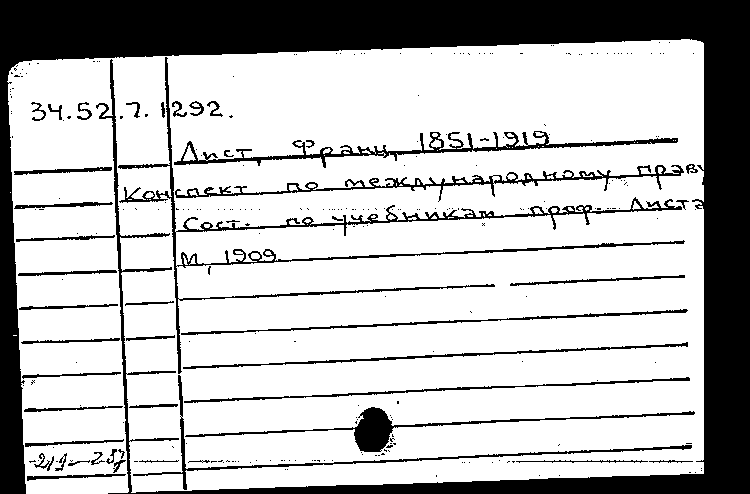 34.52.7.1292.
Лист, Франц, 1851-1919
Конспект по международному праву
Сост. по учебникам проф. Листа
М, 1909